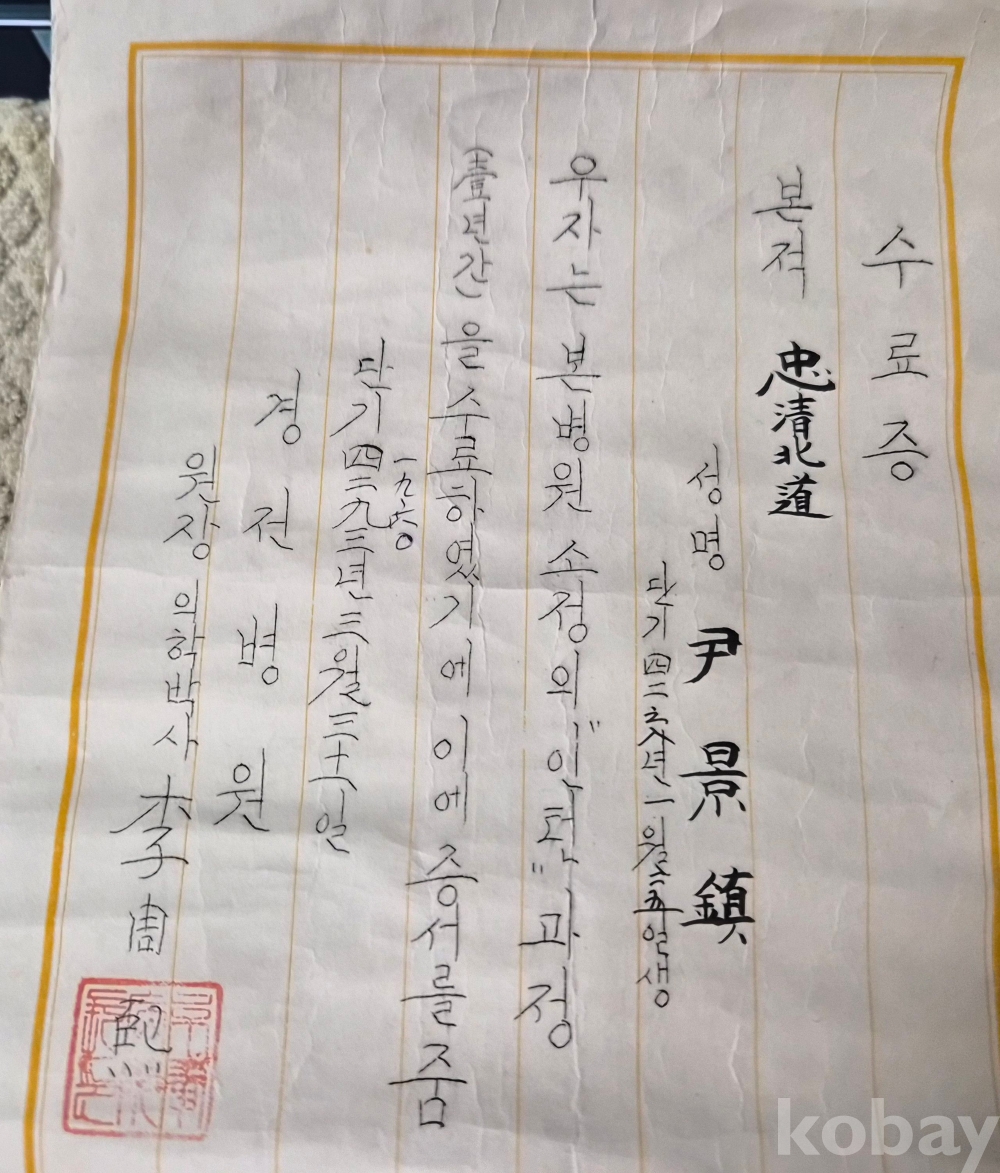 수료증
본적 忠清北道
성명 尹景鎮
단기 四二六六년 一월 二五일생
우자는 본병원 소정의 "인턴" 과정
(壹년간)을 수료하였기에 이에 증서를 줌
一九六〇
단기 四二九三년 三월 三十一일
경전병원
원장 의학박사 李周
kobay